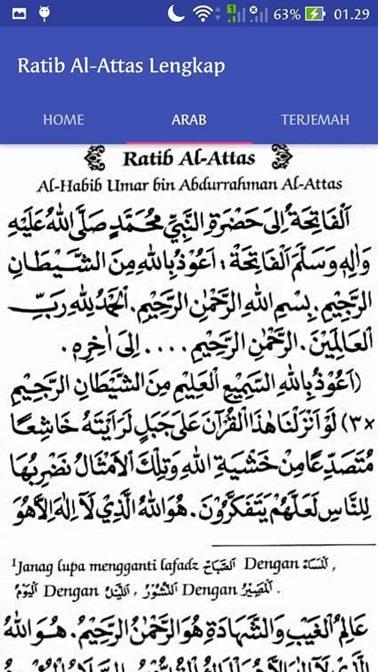 63% 01.29
Ratib Al-Attas Lengkap
HOME ARAB TERJEMAH
Ratib Al-Attas
Al-Habib Umar bin Abdurrahman Al-Attas
اَلْفَاتِحَةُ اِلَى حَضْرَةِ النَّبِيِّ مُحَمَّدٍ صَلَّى اللهُ عَلَيْهِ
وَاٰلِهِ وَسَلَّمَ اَلْفَاتِحَةْ : اَعُوْذُ بِاللهِ مِنَ الشَّيْطَانِ
الرَّجِيْمِ. بِسْمِ اللهِ الرَّحْمٰنِ الرَّحِيْمِ. اَلْحَمْدُ لِلّٰهِ رَبِّ
الْعَالَمِيْنَ. اَلرَّحْمٰنِ الرَّحِيْمِ .... اِلَى اٰخِرِهِ .
(اَعُوْذُ بِاللهِ السَّمِيْعِ الْعَلِيْمِ مِنَ الشَّيْطَانِ الرَّجِيْمِ
×٣) لَوْ اَنْزَلْنَا هٰذَا الْقُرْآنَ عَلَى جَبَلٍ لَرَاَيْتَهُ خَاشِعًا
مُتَصَدِّعًا مِنْ خَشْيَةِ اللهِ وَتِلْكَ الْاَمْثَالُ نَضْرِبُهَا
لِلنَّاسِ لَعَلَّهُمْ يَتَفَكَّرُوْنَ. هُوَ اللهُ الَّذِيْ لَآ اِلٰهَ اِلَّا هُوَ
¹Janag lupa mengganti lafadz الصَّبَاحْ Dengan الْمَسَاءْ ,
الْيَوْمْ Dengan اللَّيْلْ , النُّشُوْرْ Dengan الْمَصِيْرْ .
عَالِمُ الْغَيْبِ وَالشَّهَادَةِ هُوَ الرَّحْمٰنُ الرَّحِيْمُ. هُوَ اللهُ